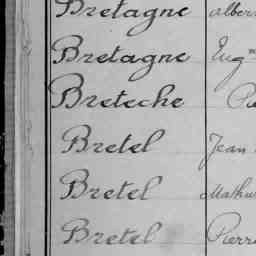 Bretagne Alber
Bretagne Eug.
Breteche
Bretel Jean
Bretel Mathu
Bretel Pierr